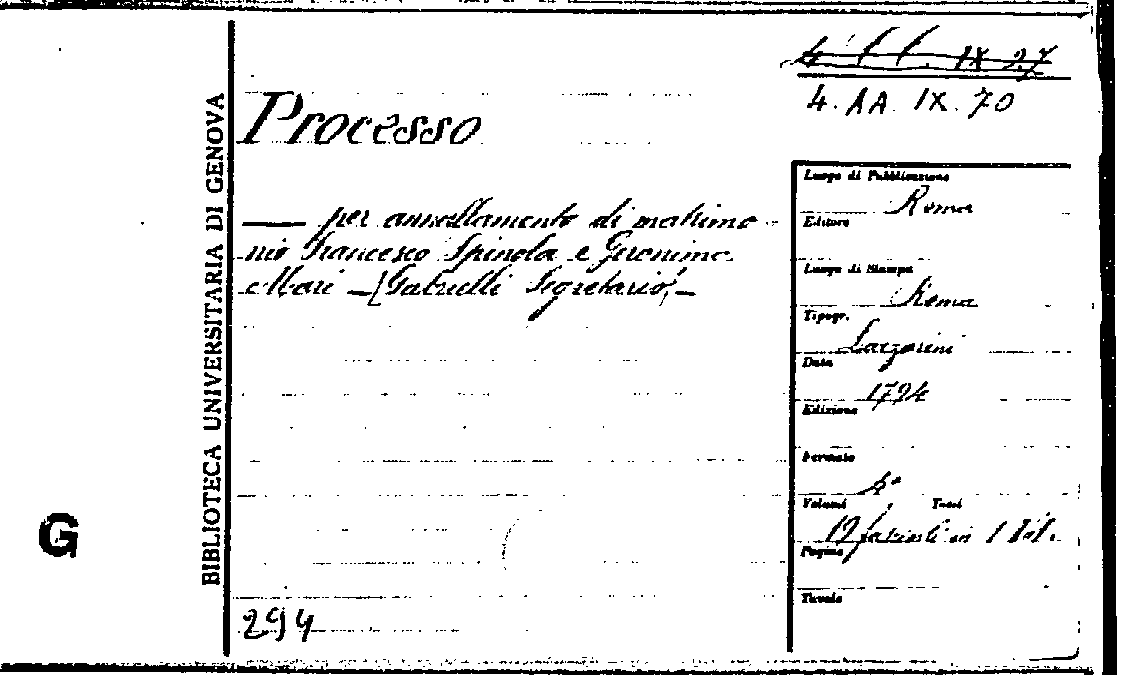 4. AA. IX. 70
Processo
— per annullamento di matrimo
nio Francesco Spinola e Geronima
Mari — (Gabrielli Segretario) —
BIBLIOTECA UNIVERSITARIA DI GENOVA
G
294
Luogo di Pubblicazione
Roma
Editore
Luogo di Stampa
Roma
Tipogr.
Lazzarini
Data
1794
Edizione
Formato
4°
Volumi Tomi
19 fascicoli in 1 Vol.
Pagine
Tavole